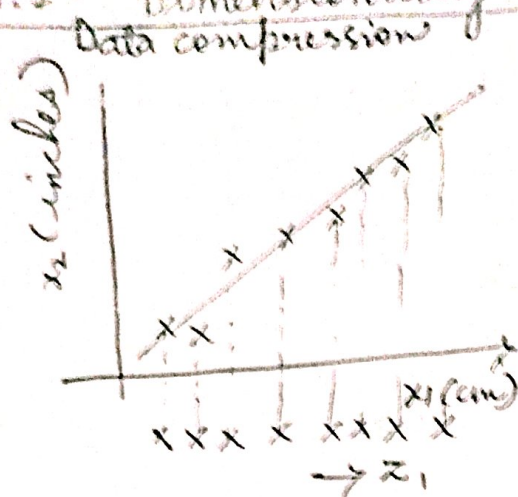 Data compression
x₂ (inches)
x₁ (cm)
→ z₁